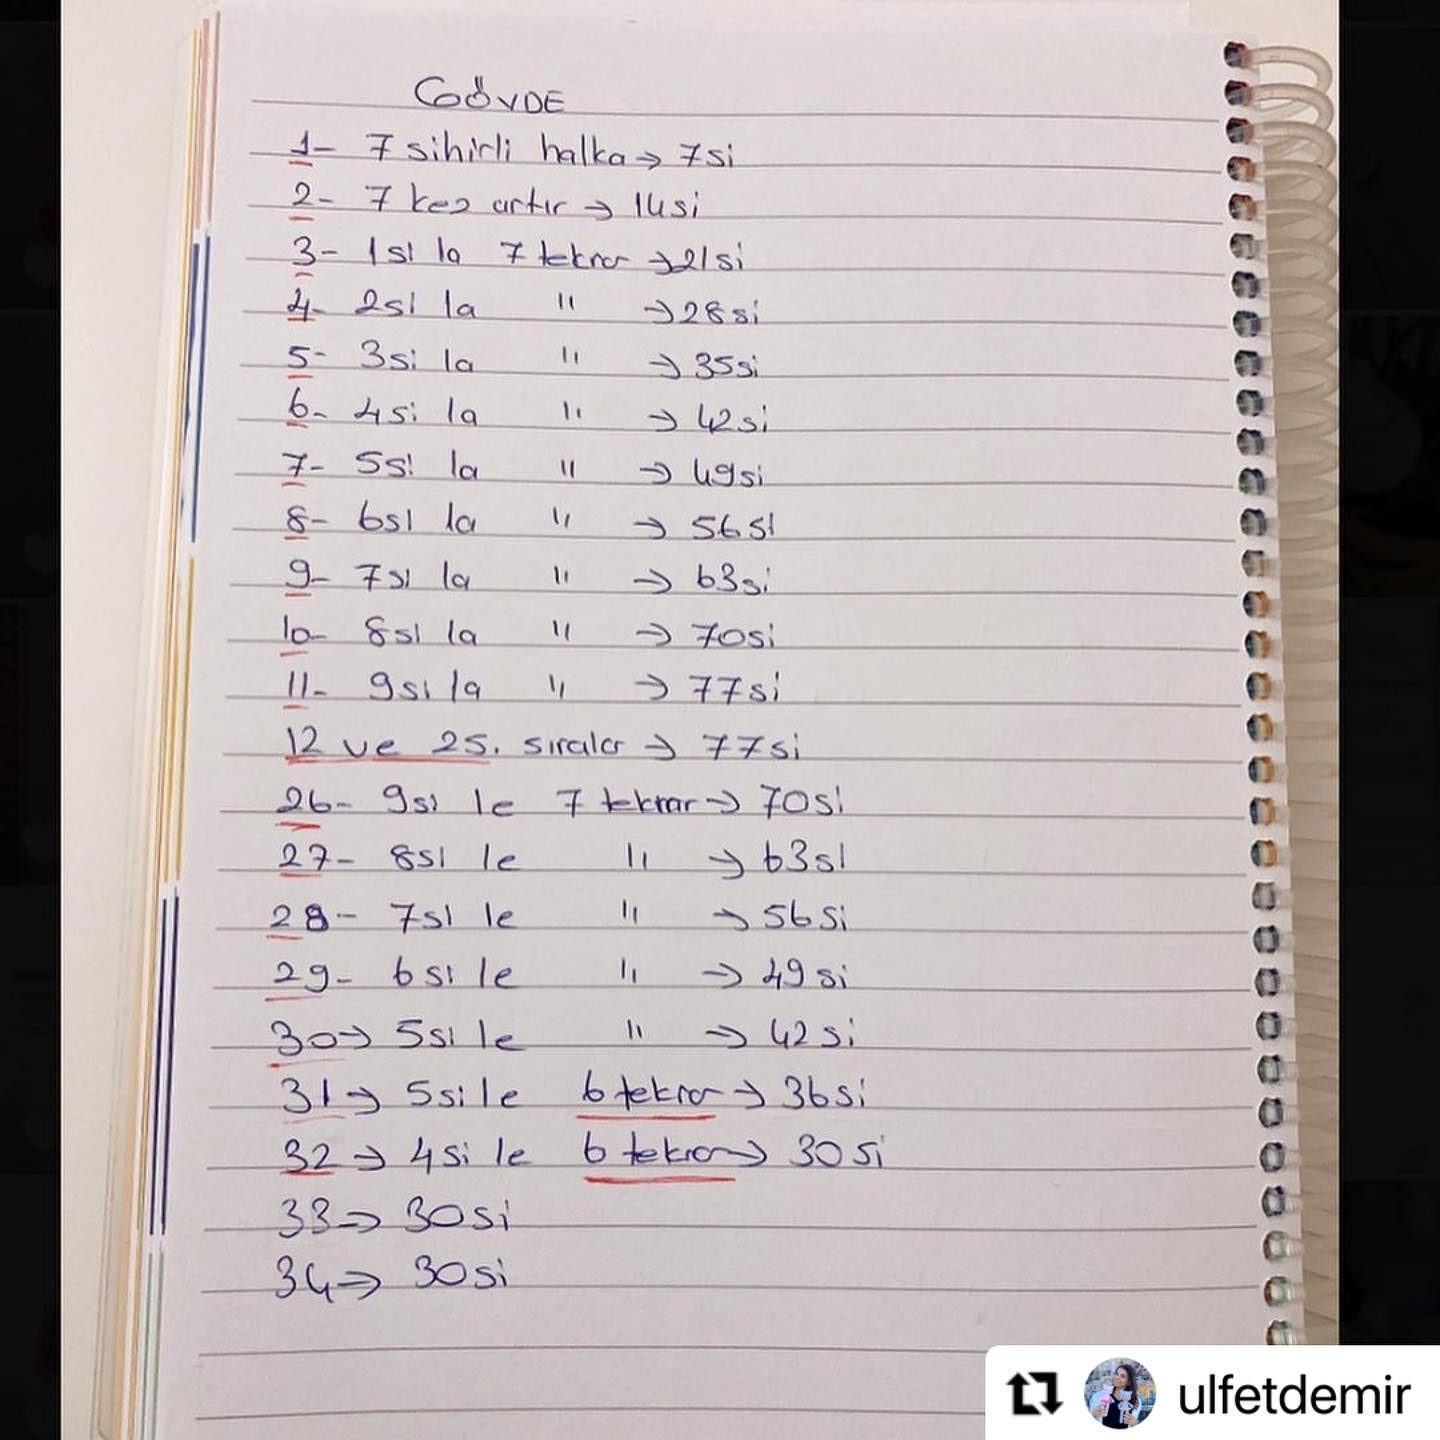 GÖVDE
1- 7 sihirli halka → 7si
2- 7 kez artır → 14si
3- 1si la 7 tekrar → 21si
4- 2si la " → 28si
5- 3si la " → 35si
6- 4si la " → 42si
7- 5si la " → 49si
8- 6si la " → 56si
9- 7si la " → 63si
10- 8si la " → 70si
11- 9si la " → 77si
12 ve 25. sıralar → 77si
26- 9si le 7 tekrar → 70si
27- 8si le " → 63si
28- 7si le " → 56si
29- 6si le " → 49si
30→ 5si le " → 42si
31→ 5si le 6 tekrar → 36si
32→ 4si le 6 tekrar → 30si
33→ 30si
34→ 30si
ulfetdemir